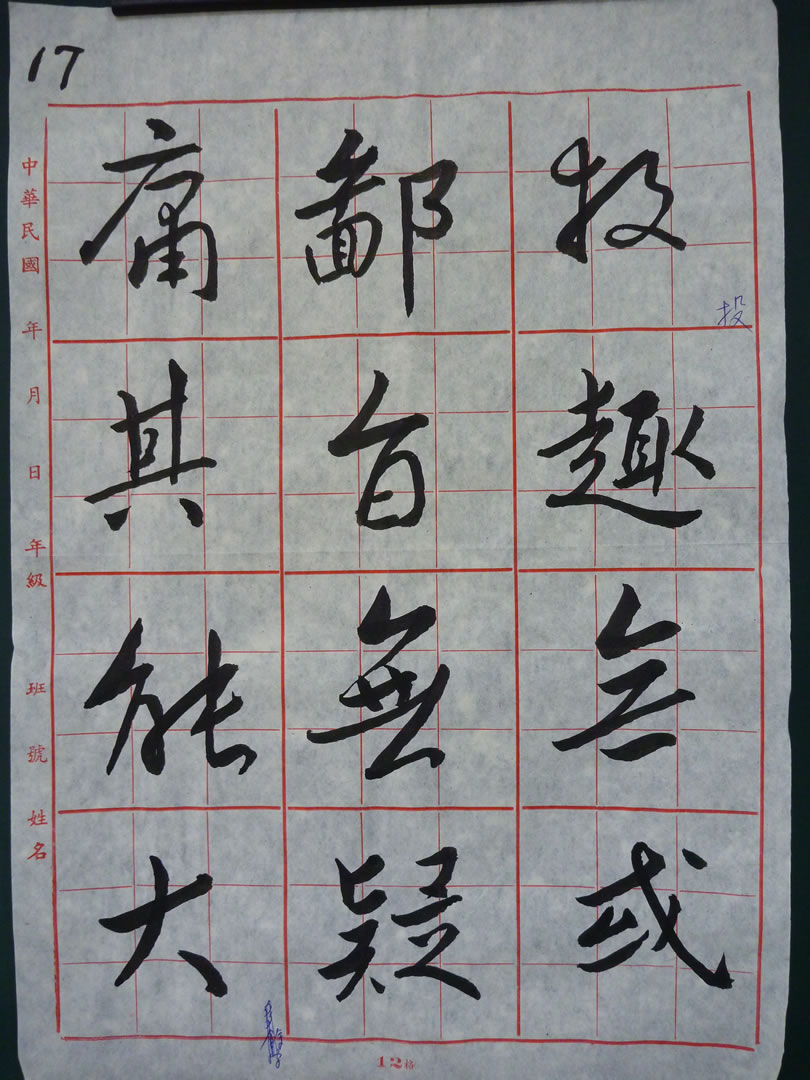 17
投趣或
鄙旨無疑
庸其能大
投
中華民國 年 月 日 年級 班 號 姓名
12格